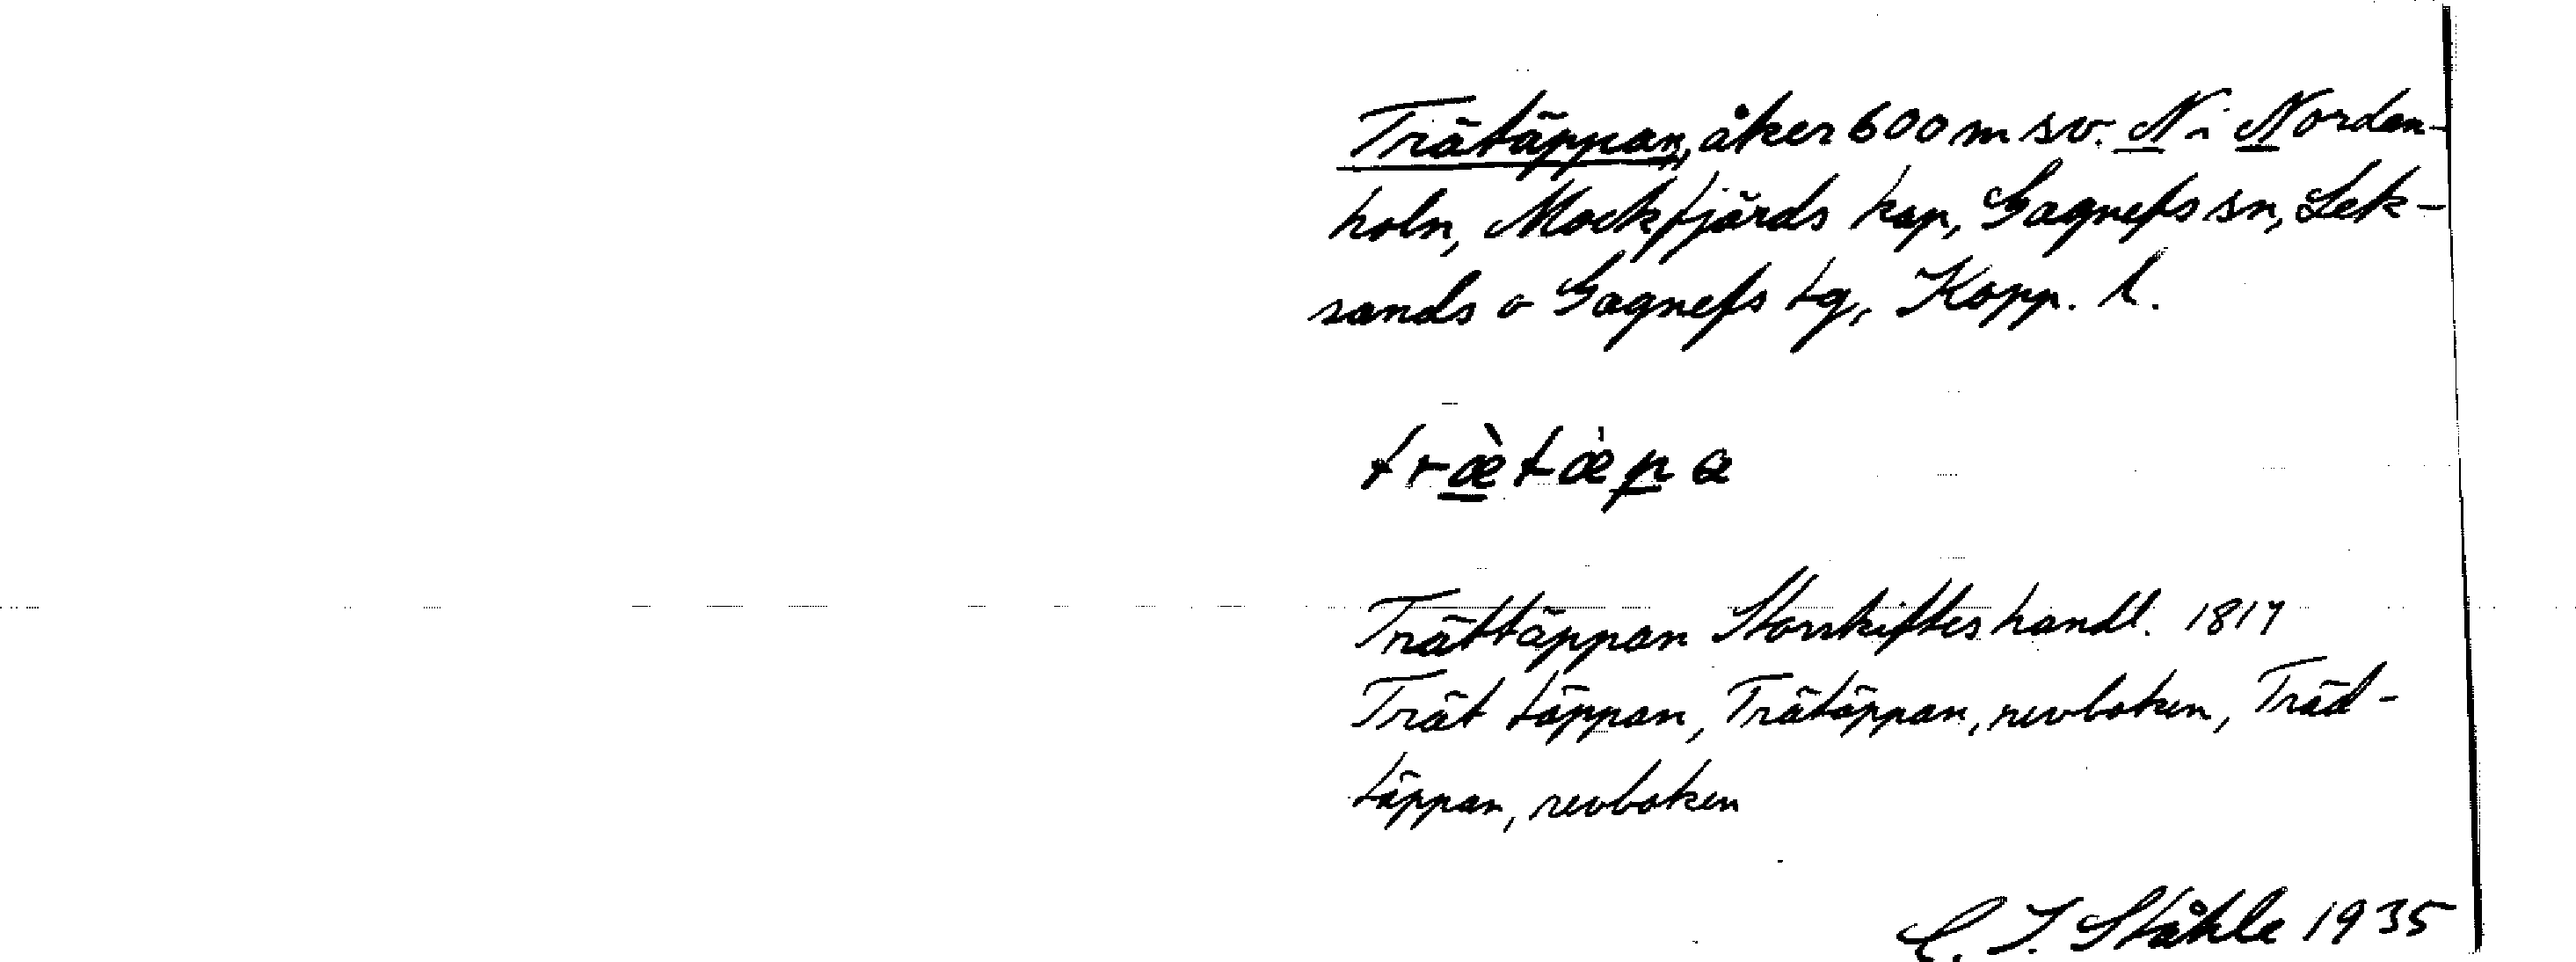 Trätäppan, åker 600 m sv. N i Norden-
holn, Mockfjärds kap, Gagnefs sn, Lek-
sands o Gagnefs tg, Kopp. l.
træ̀tæ̍pa
Trättäppan Storskifteshandl. 1817
Trät täppan, Trätäppan, revboken, Träd-
täppan, revboken
C. I. Ståhle 1935